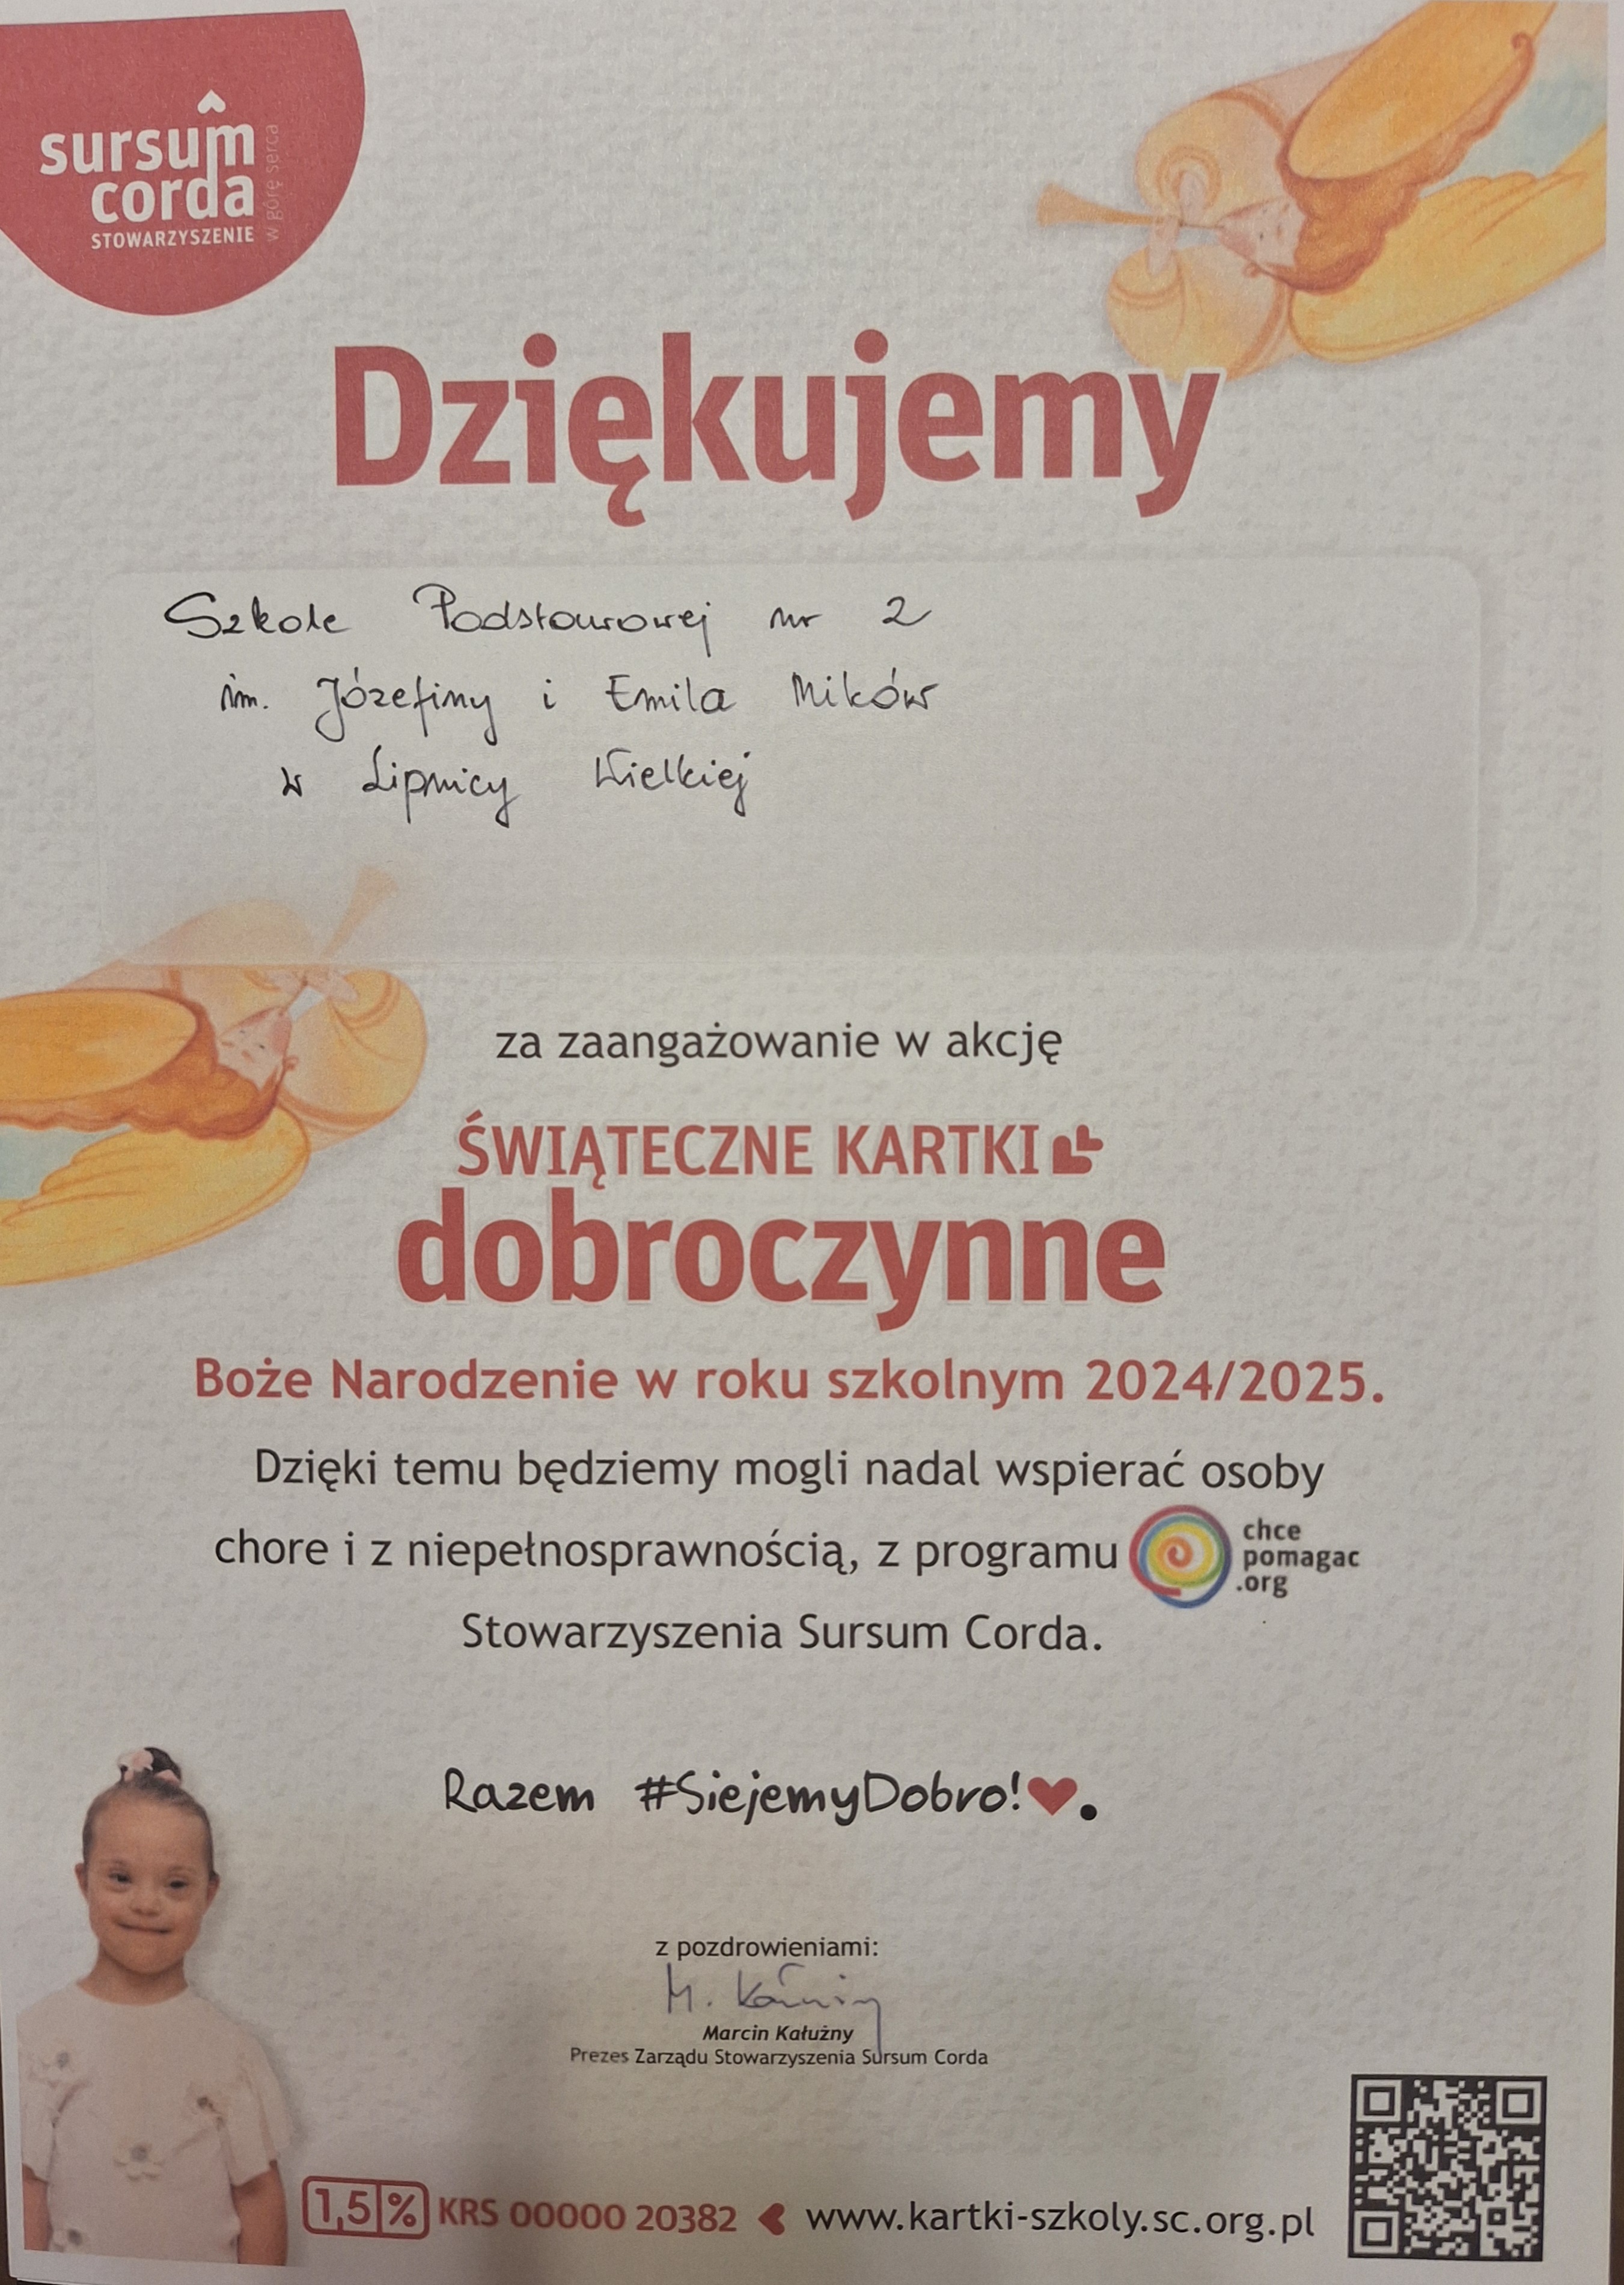 sursum
corda
STOWARZYSZENIE
w górę serca
Dziękujemy
Szkole Podstawowej nr 2
im. Józefiny i Emila Mików
w Lipnicy Wielkiej
za zaangażowanie w akcję
ŚWIĄTECZNE KARTKI
dobroczynne
Boże Narodzenie w roku szkolnym 2024/2025.
Dzięki temu będziemy mogli nadal wspierać osoby
chore i z niepełnosprawnością, z programu chce pomagac .org
Stowarzyszenia Sursum Corda.
Razem #SiejemyDobro!❤.
z pozdrowieniami:
Marcin Kałużny
Prezes Zarządu Stowarzyszenia Sursum Corda
1,5% KRS 00000 20382 www.kartki-szkoly.sc.org.pl